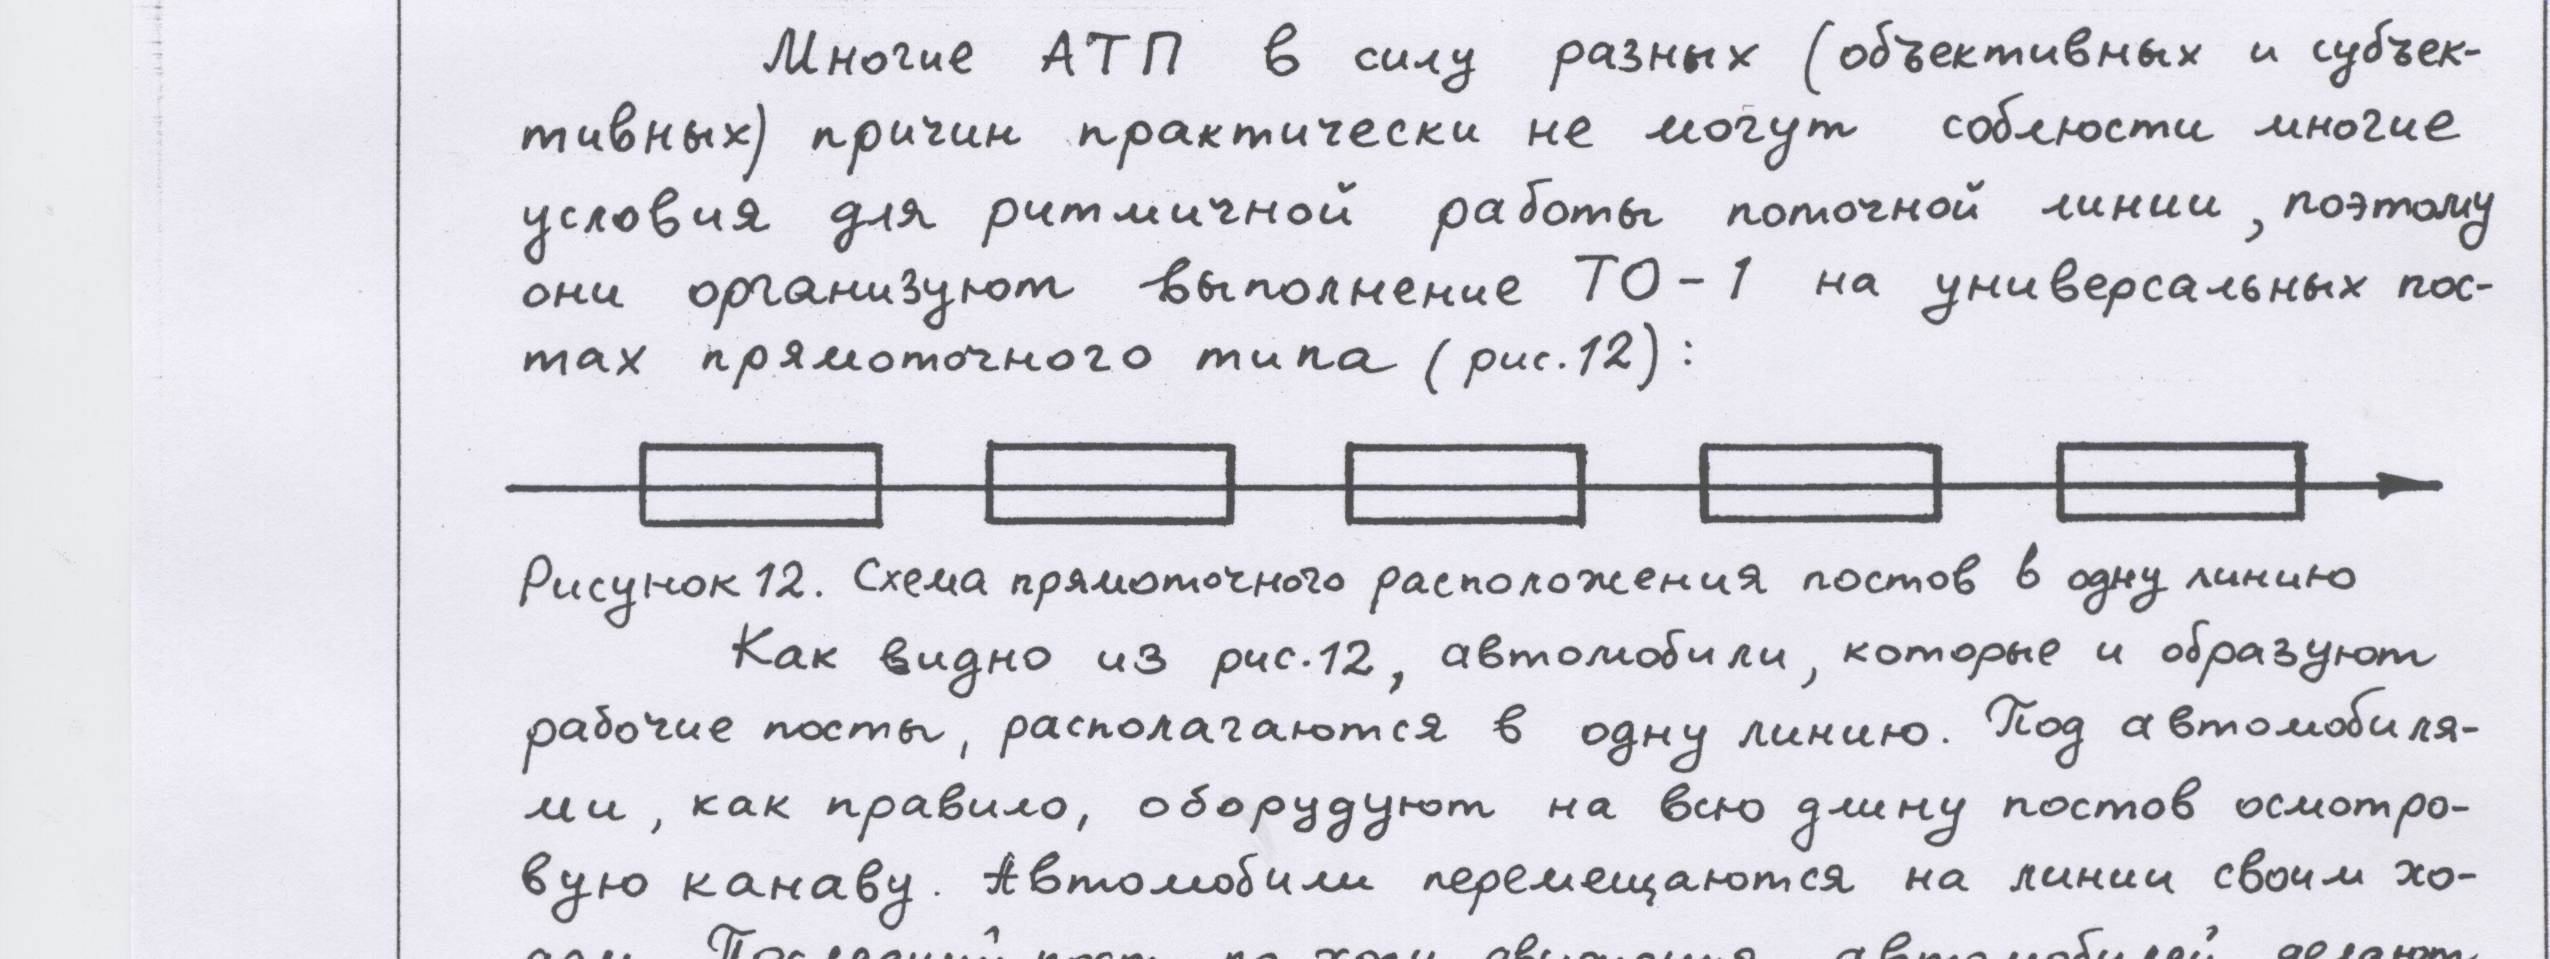 Многие АТП в силу разных (объективных и субъек-
тивных) причин практически не могут соблюсти многие
условия для ритмичной работы поточной линии, поэтому
они организуют выполнение ТО-1 на универсальных пос-
тах прямоточного типа (рис.12):
Рисунок 12. Схема прямоточного расположения постов в одну линию
Как видно из рис.12, автомобили, которые и образуют
рабочие посты, располагаются в одну линию. Под автомобиля-
ми, как правило, оборудуют на всю длину постов осмотро-
вую канаву. Автомобили перемещаются на линии своим хо-
дом. Последний пост по ходу движения автомобилей делают